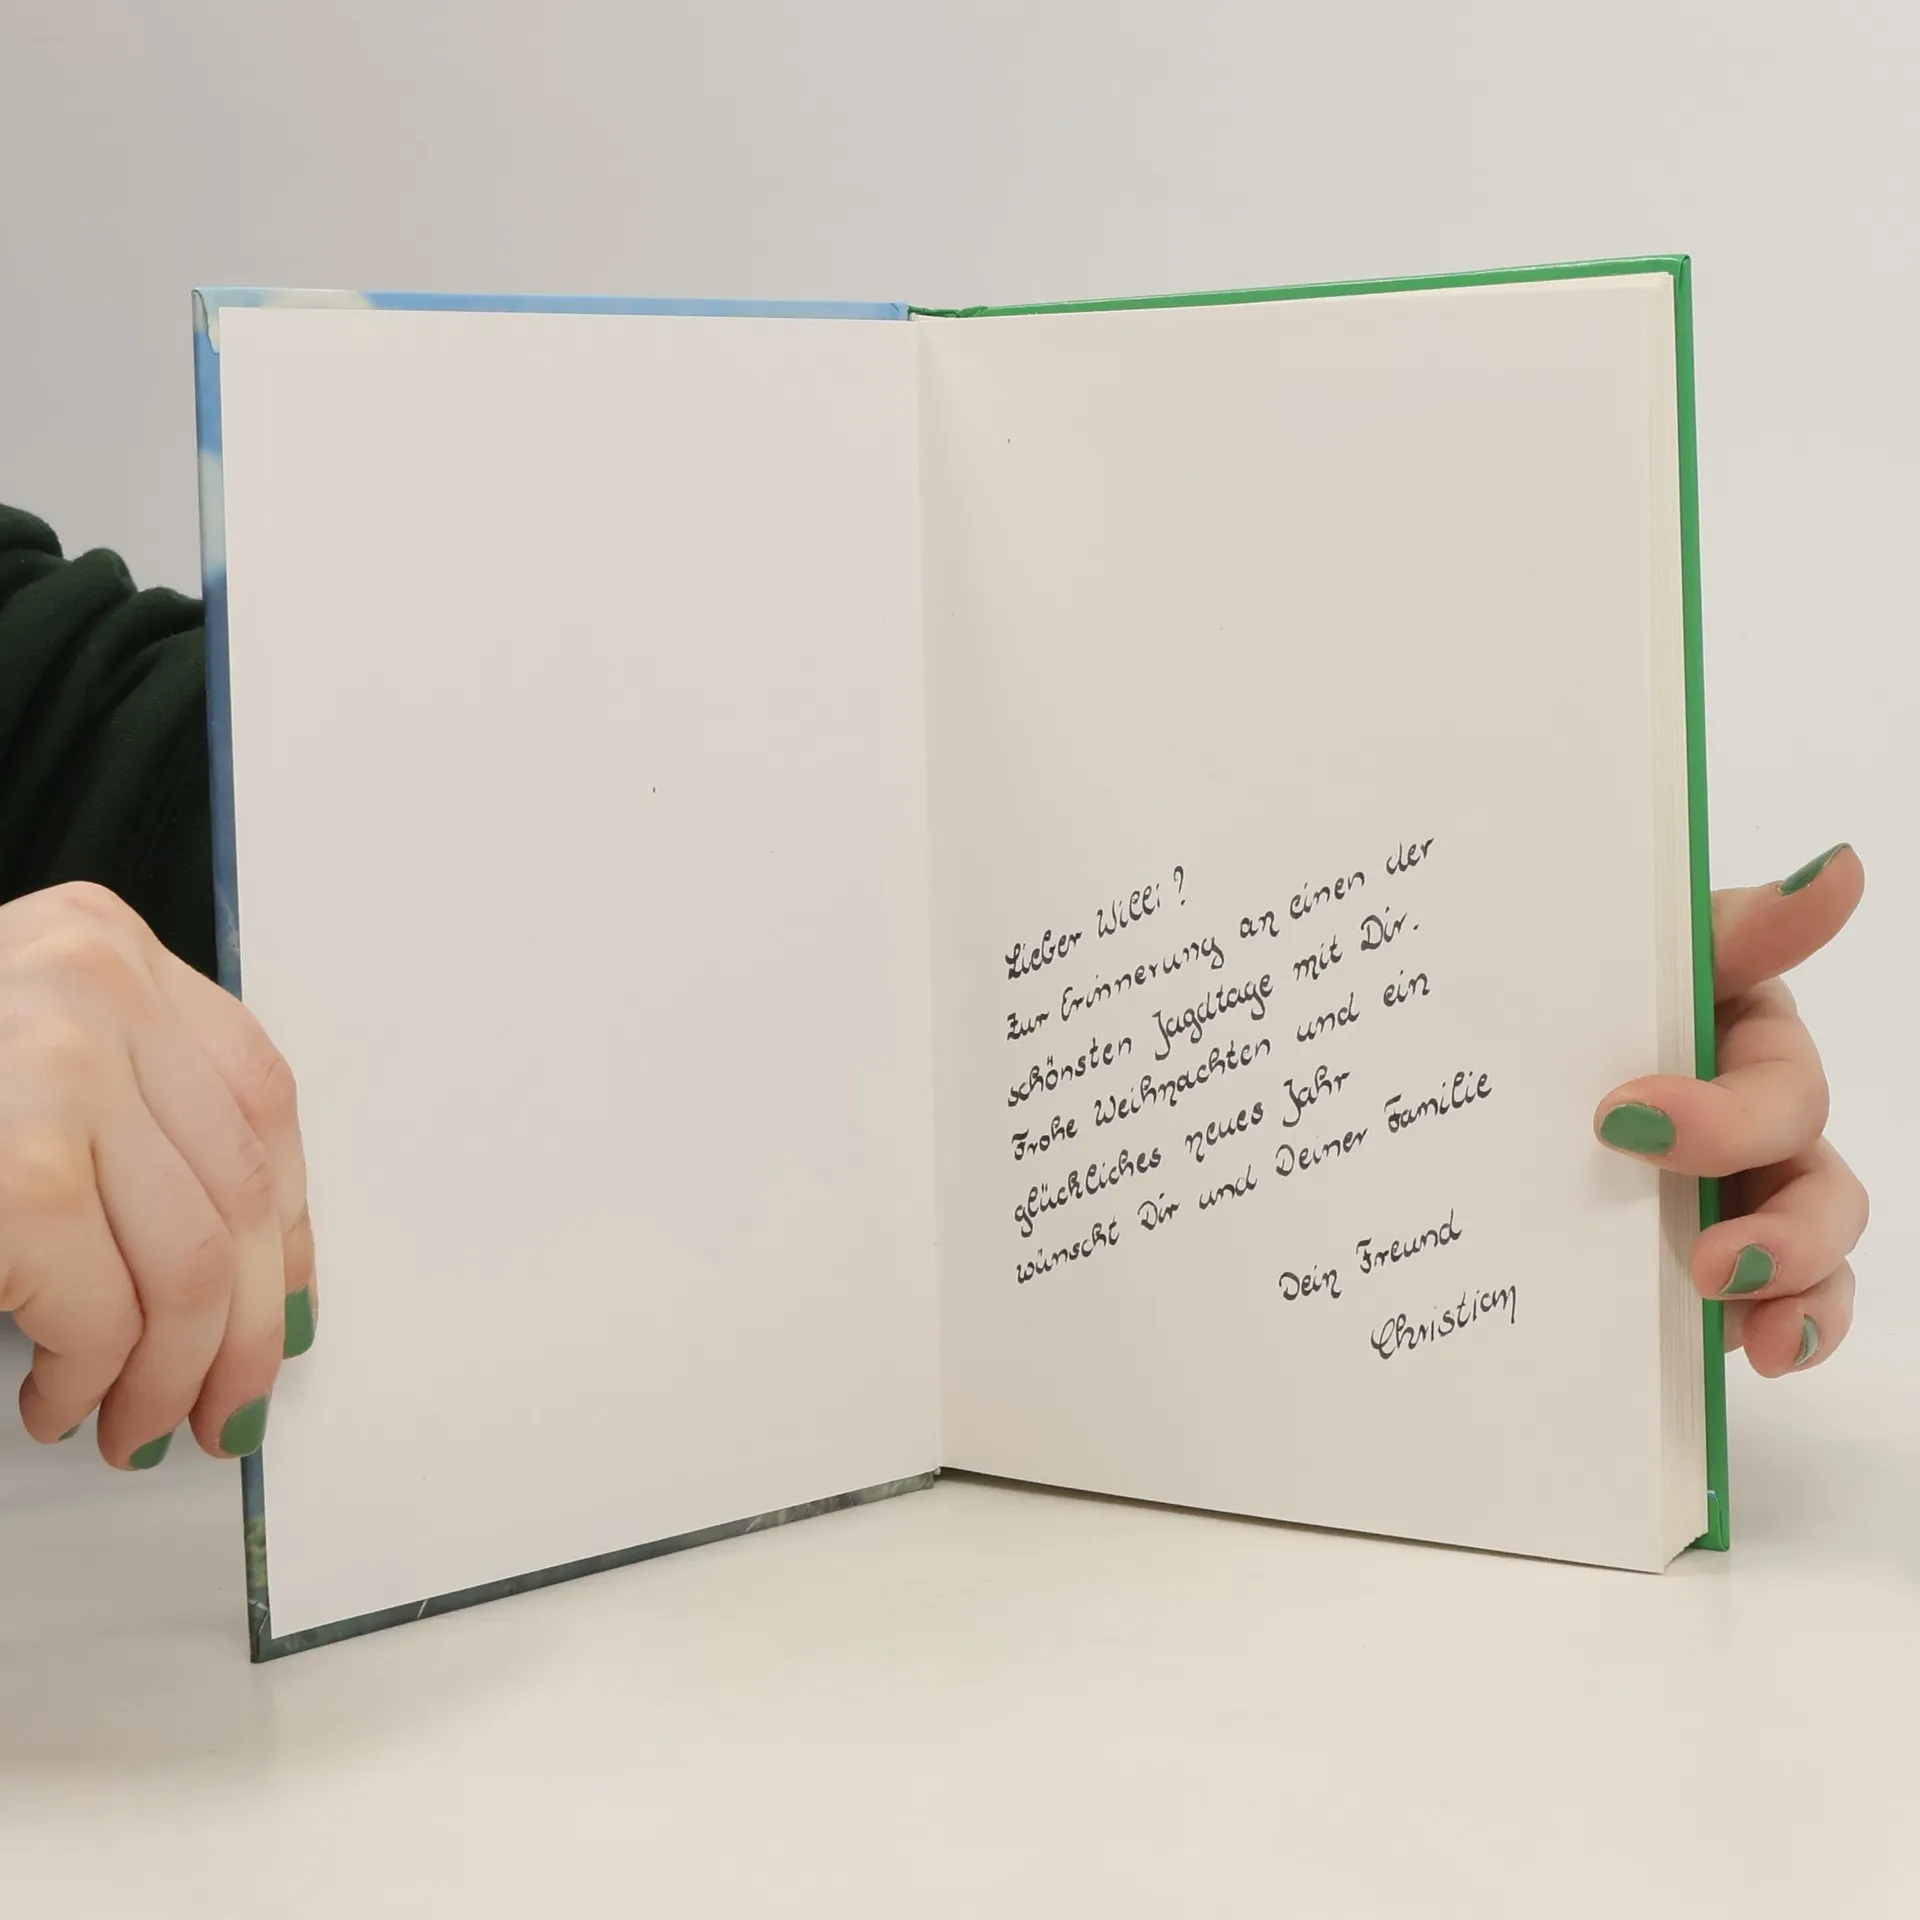 Lieber Willi ?
Zur Erinnerung an einen der
schönsten Jagdtage mit Dir.
Frohe Weihnachten und ein
glückliches neues Jahr
wünscht Dir und Deiner Familie
Dein Freund
Christian